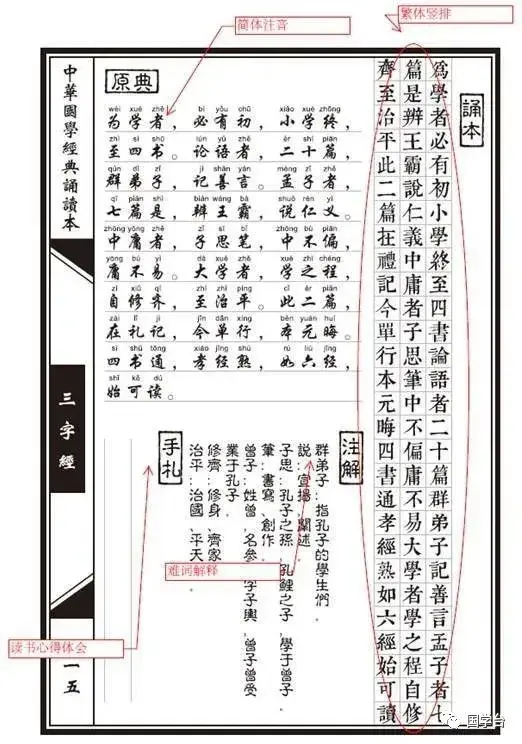 简体注音
繁体竖排
誦本
為學者必有初小學終至四書論語者二十篇群弟子記善言孟子者七
篇是辨王霸說仁義中庸者子思筆中不偏庸不易大學者學之程自修
齊至治平此二篇在禮記今單行本元晦四書通孝經熟如六經始可讀
原典
wéi xué zhě bì yǒu chū xiǎo xué zhōng
为学者，必有初，小学终，
zhì sì shū lún yǔ zhě èr shí piān
至四书。论语者，二十篇，
qún dì zǐ jì shàn yán mèng zǐ zhě
群弟子，记善言。孟子者，
qī piān shì biàn wáng bà shuō rén yì
七篇是，辨王霸，说仁义。
zhōng yōng zhě zǐ sī bǐ zhōng bù piān
中庸者，子思笔，中不偏，
yōng bú yì dà xué zhě xué zhī chéng
庸不易。大学者，学之程，
zì xiū qí zhì zhì píng cǐ èr piān
自修齐，至治平。此二篇，
zài lǐ jì jīn dān xíng běn yuán huì
在礼记，今单行，本元晦。
sì shū tōng xiào jīng shú rú liù jīng
四书通，孝经熟，如六经，
shǐ kě dú
始可读。
注解
群弟子：指孔子的學生們．
說：宣揚，闡述．
子思：孔子之孫，孔鯉之子，學于曾子．
筆：書寫，創作．
曾子：姓曾，名參，字子輿，曾子曾受
業于孔子．
修齊：修身，齊家
治平：治國，平天
手札
难词解释
读书心得体会
中華國學經典誦讀本
三字經
一五
国学台